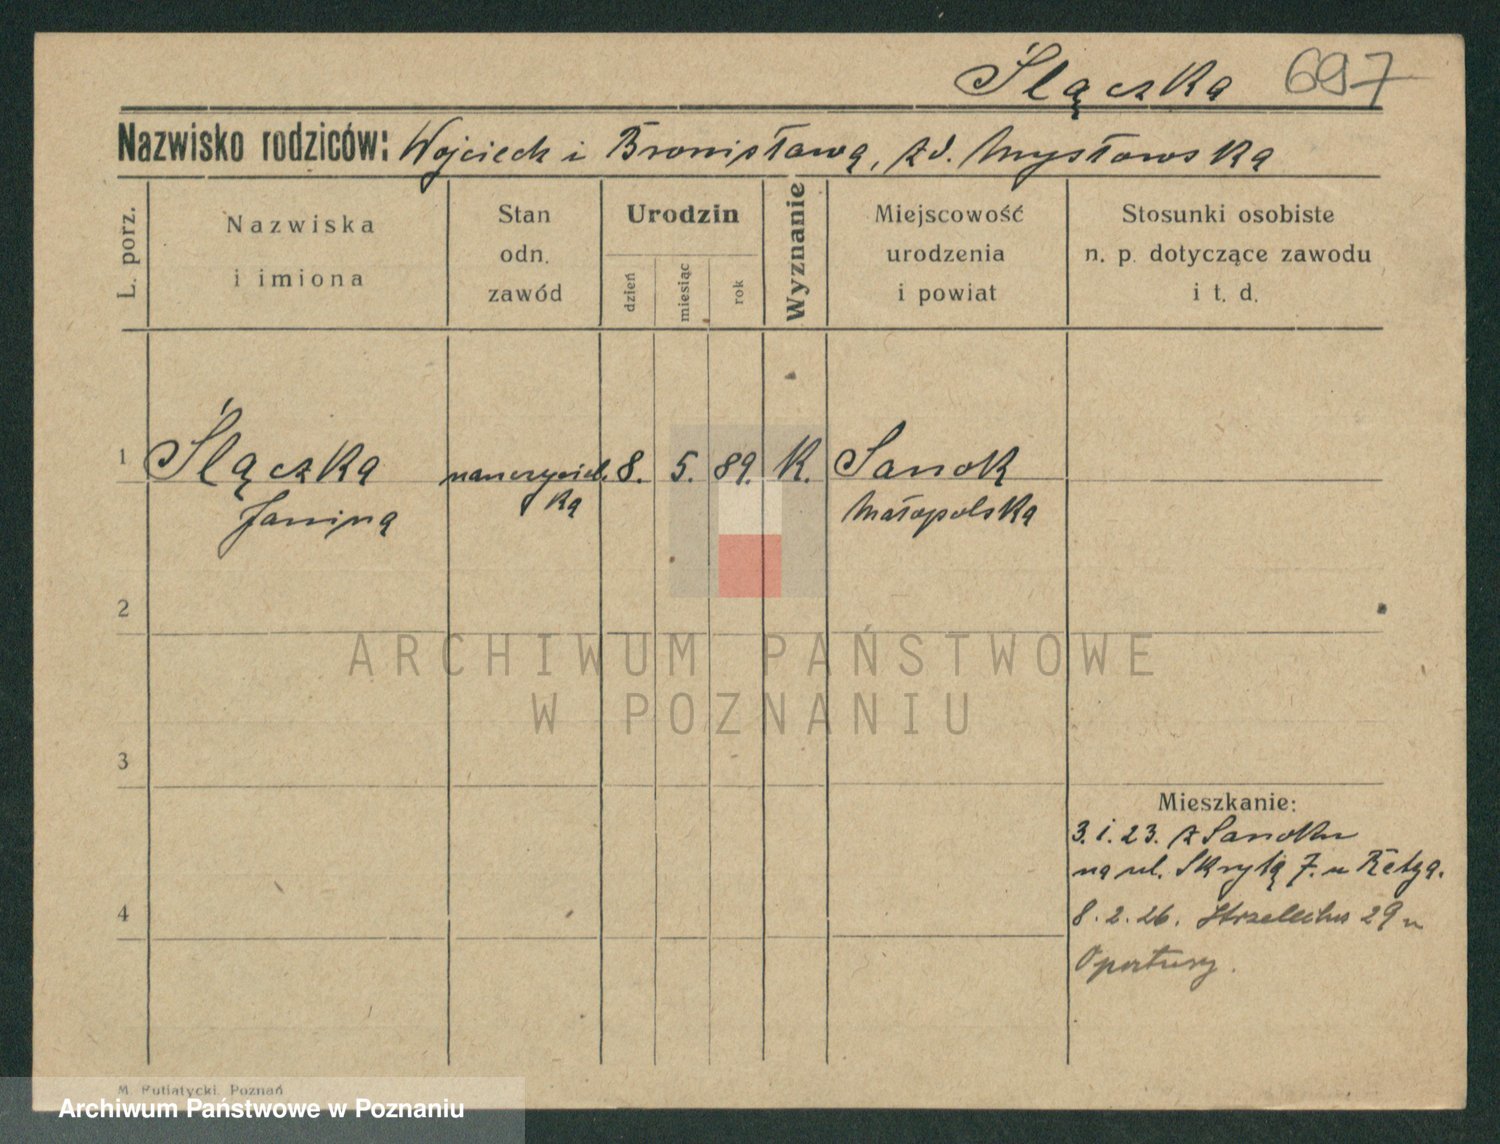 Ślączka 697
Nazwisko rodziców: Wojciech i Bronisława, zd. Mysłowska
L. porz.
Nazwiska
i imiona
Stan
odn.
zawód
Urodzin
dzień
miesiąc
rok
Wyznanie
Miejscowość
urodzenia
i powiat
Stosunki osobiste
n. p. dotyczące zawodu
i t. d.
1 Ślączka nauczyciel. 8. 5. 89. K. Sanok
Janina ka Małopolska
2
ARCHIWUM PAŃSTWOWE
W POZNANIU
3
Mieszkanie:
3.1.23. z Sanoka
na ul. Skrytą 7. u Retza.
4
8.2.26. Strzelecka 29 u
M. Putiatycki, Poznań
Archiwum Państwowe w Poznaniu